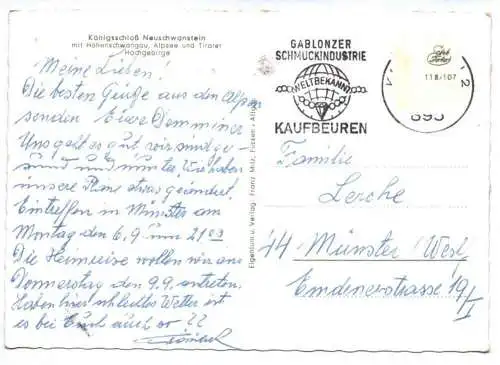 Königsschloß Neuschwanstein
mit Hohenschwangau, Alpsee und Tiroler
Hochgebirge
Meine Lieben!
Die besten Grüße aus den Alpen
senden Eure
Uns geht es gut wir sind ge-
sund und munter. Wir haben
unsere Pläne etwas geändert.
Eintreffen in Münster am
Montag den 6.9 um 21 03
Die Heimreise wollen wir am
Donnerstag den 9.9. antreten.
Haben hier schlechtes Wetter ist
es bei Euch auch so ??
Eigentum u. Verlag: Franz Milz, Füssen
GABLONZER
SCHMUCKINDUSTRIE
WELTBEKANNT
KAUFBEUREN
895
Familie
Lerche
44 Münster/Westf
Emdenerstrasse 19/I